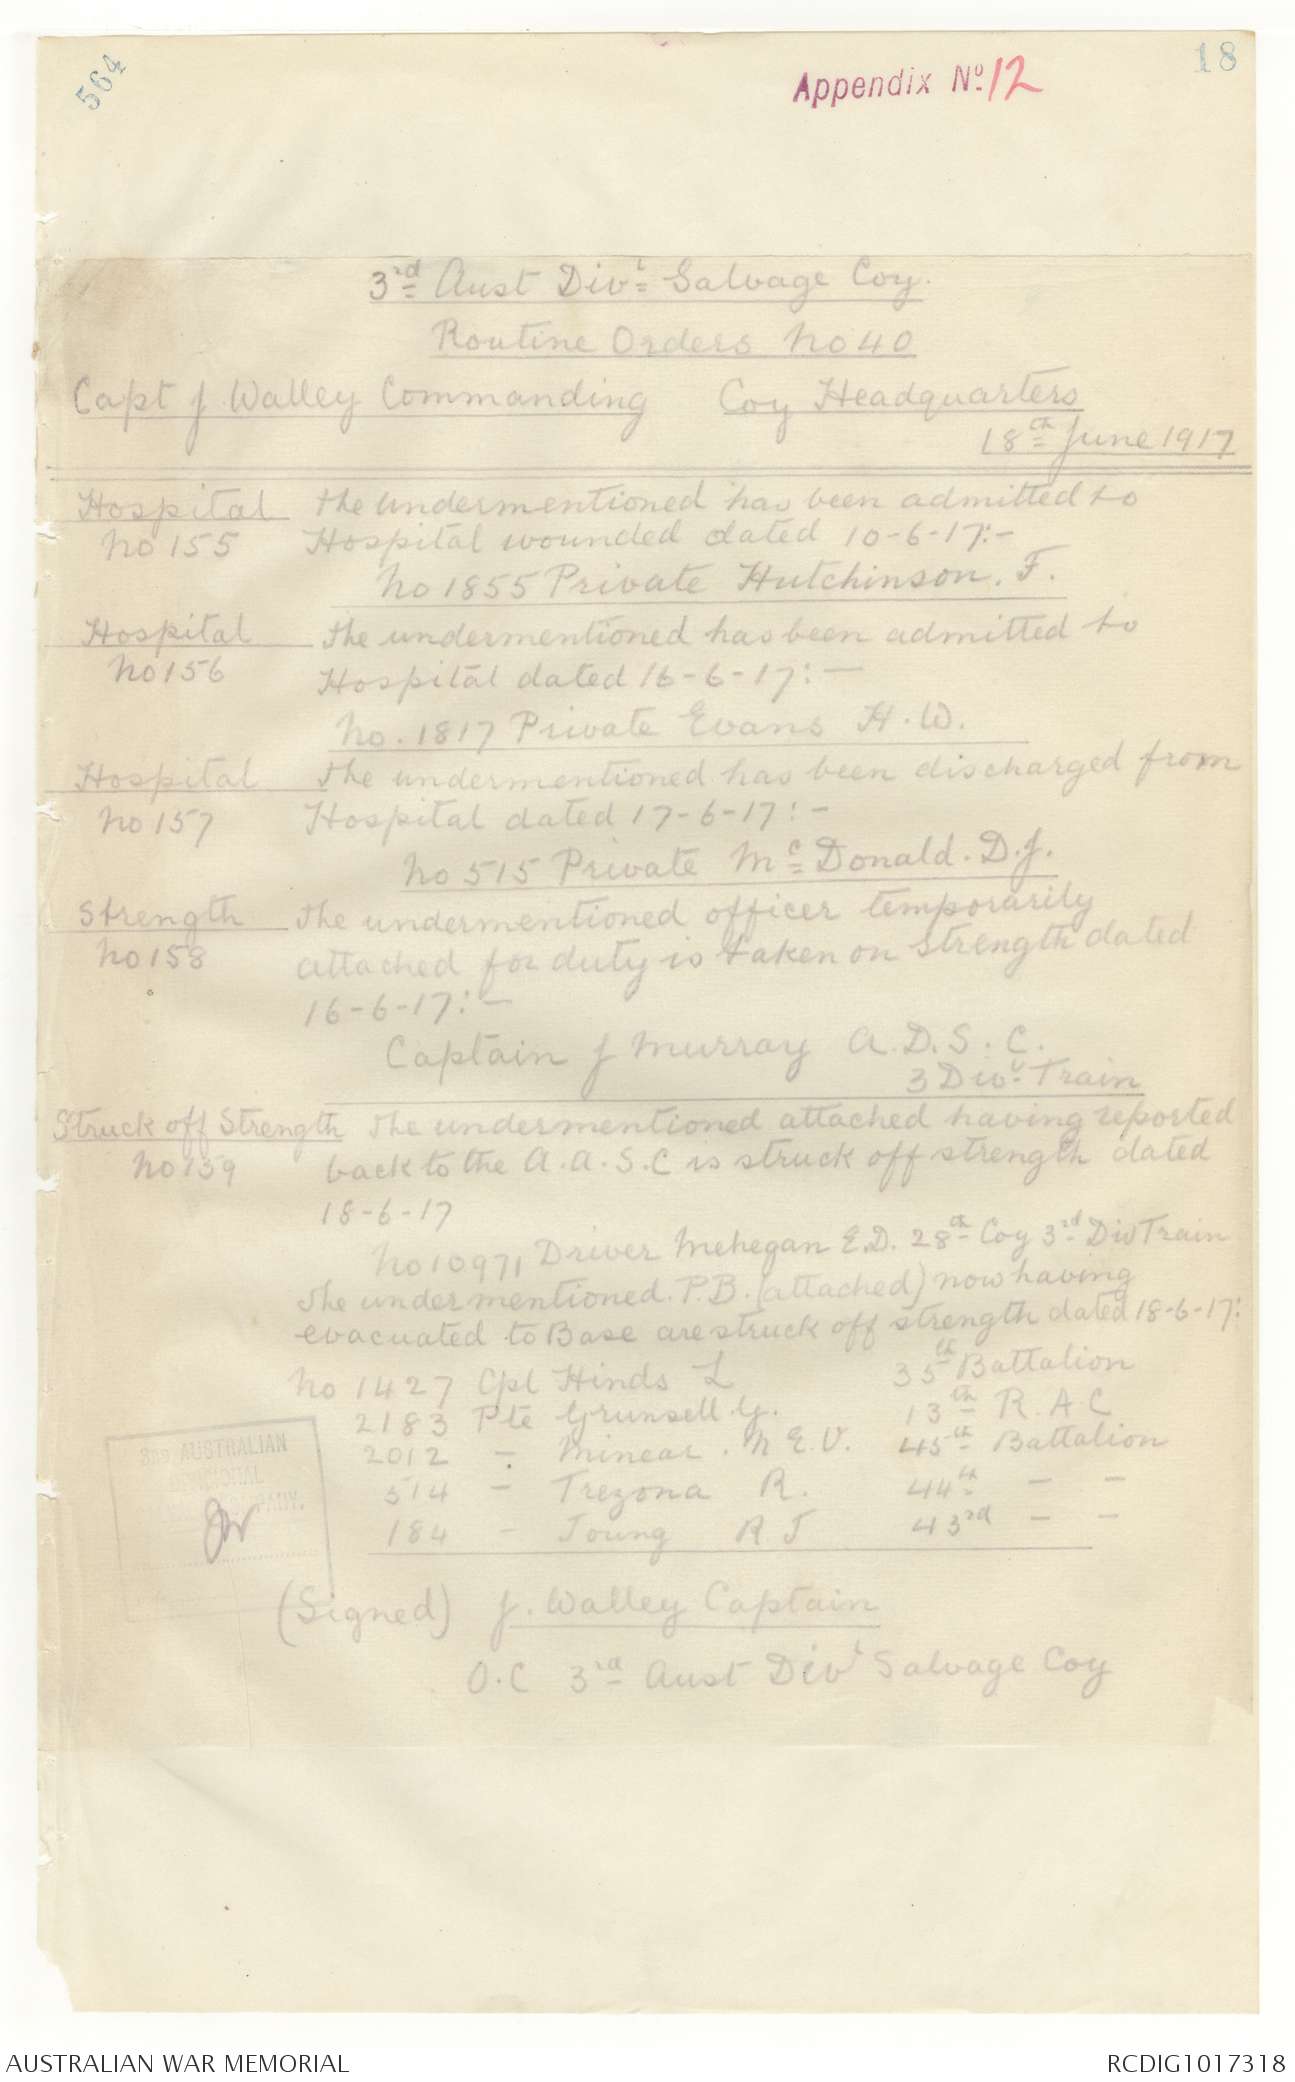 564
18
Appendix No. 12
3rd Aust Divl Salvage Coy.
Routine Orders No 40
Capt J Walley Commanding Coy Headquarters
18th June 1917
Hospital The undermentioned has been admitted to
No 155 Hospital wounded dated 10-6-17:-
No 1855 Private Hutchinson. F.
Hospital The undermentioned has been admitted to
No 156 Hospital dated 16-6-17:-
No. 1817 Private Evans H.W.
Hospital The undermentioned has been discharged from
No 157 Hospital dated 17-6-17:-
No 515 Private McDonald. D.J.
Strength The undermentioned officer temporarily
No 158 attached for duty is taken on strength dated
16-6-17:-
Captain J Murray A.D.S.C.
3 Divl Train
Struck off Strength The undermentioned attached having reported
No 159 back to the A.A.S.C is struck off strength dated
18-6-17
No 10971 Driver Mehegan E.D. 28th Coy 3rd Div Train
The undermentioned P.B. (attached) now having
evacuated to Base are struck off strength dated 18-6-17:
No 1427 Cpl Hinds L 35th Battalion
2183 Pte Grunsell G. 13th R.A.C
2012 - Minear. N E.V. 45th Battalion
514 - Trezona R. 44th - -
184 - Young R J 43rd - -
3RD AUSTRALIAN
DIVISIONAL
COMPANY.
JW
(Signed) J. Walley Captain
O.C 3rd Aust Divl Salvage Coy
AUSTRALIAN WAR MEMORIAL
RCDIG1017318